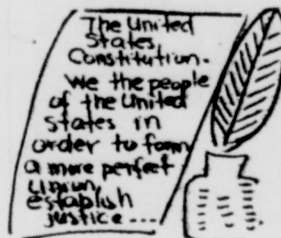 The United
States
Constitution.
We the people
of the United
States in
order to form
a more perfect
Union,
establish
justice ....